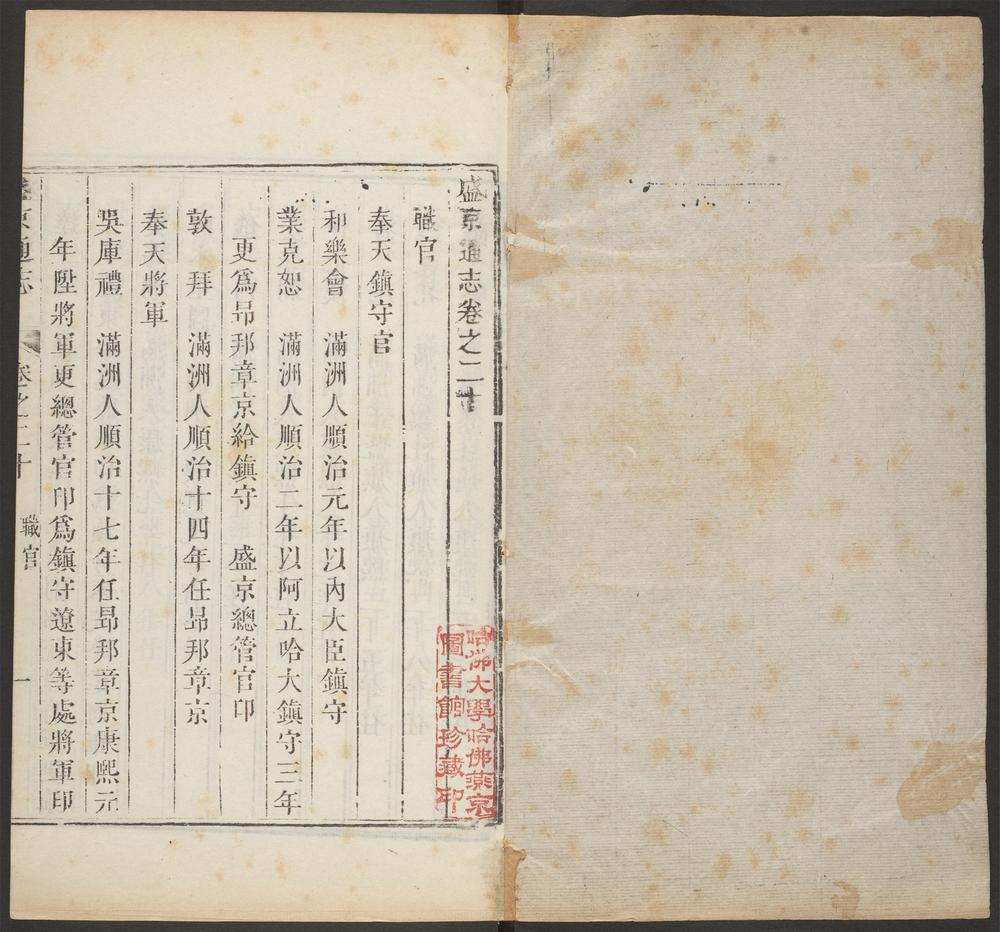 盛京通志卷之二十
職官
奉天鎮守官
和樂會　滿洲人順治元年以內大臣鎮守
業克恕　滿洲人順治二年以阿立哈大鎮守三年
更爲昻邦章京給鎮守　盛京總管官印
敦　拜　滿洲人順治十四年任昻邦章京
奉天將軍
吳庫禮　滿洲人順治十七年任昻邦章京康熙元
年陞將軍更總管官印爲鎮守遼東等處將軍印
盛京通志　卷之二十　職官　一
哈佛大學哈佛燕京
圖書館珍藏印